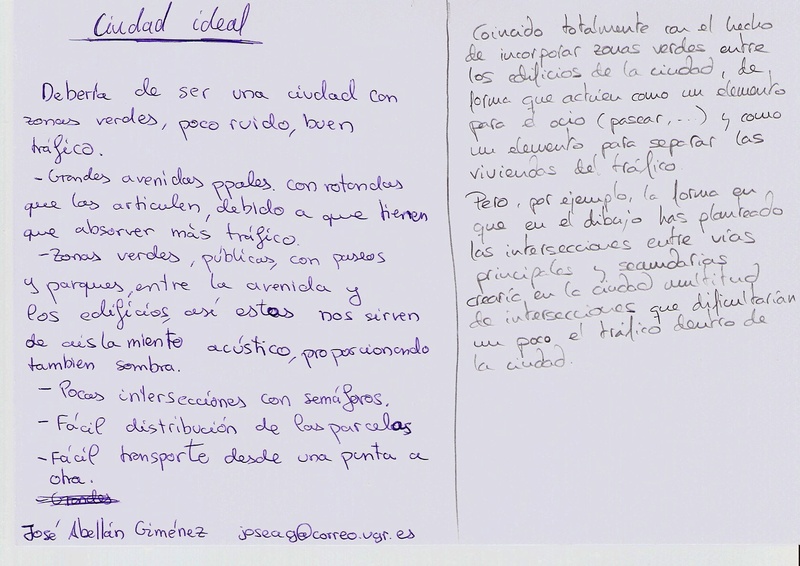 Ciudad ideal
Debería de ser una ciudad con
zonas verdes, poco ruido, buen
tráfico.
- Grandes avenidas ppales. con rotondas
que las articulen, debido a que tienen
que absorver más tráfico.
- Zonas verdes, públicas, con paseos
y parques, entre la avenida y
los edificios, así estas nos sirven
de aislamiento acústico, proporcionando
tambien sombra.
- Pocas intersecciónes con semáforos.
- Fácil distribución de las parcelas
- Fácil transporte desde una punta a
otra.
Grandes
José Abellán Giménez joseag@correo.ugr.es
Coincido totalmente con el hecho
de incorporar zonas verdes entre
los edificios de la ciudad, de
forma que actúen como un elemento
para el ocio (pasear, ...) y como
un elemento para separar las
viviendas del tráfico.
Pero, por ejemplo, la forma en
que en el dibujo has planteado
las intersecciones entre vías
principales y secundarias
crearía en la ciudad multitud
de intersecciones que dificultarían
un poco el tráfico dentro de
la ciudad.